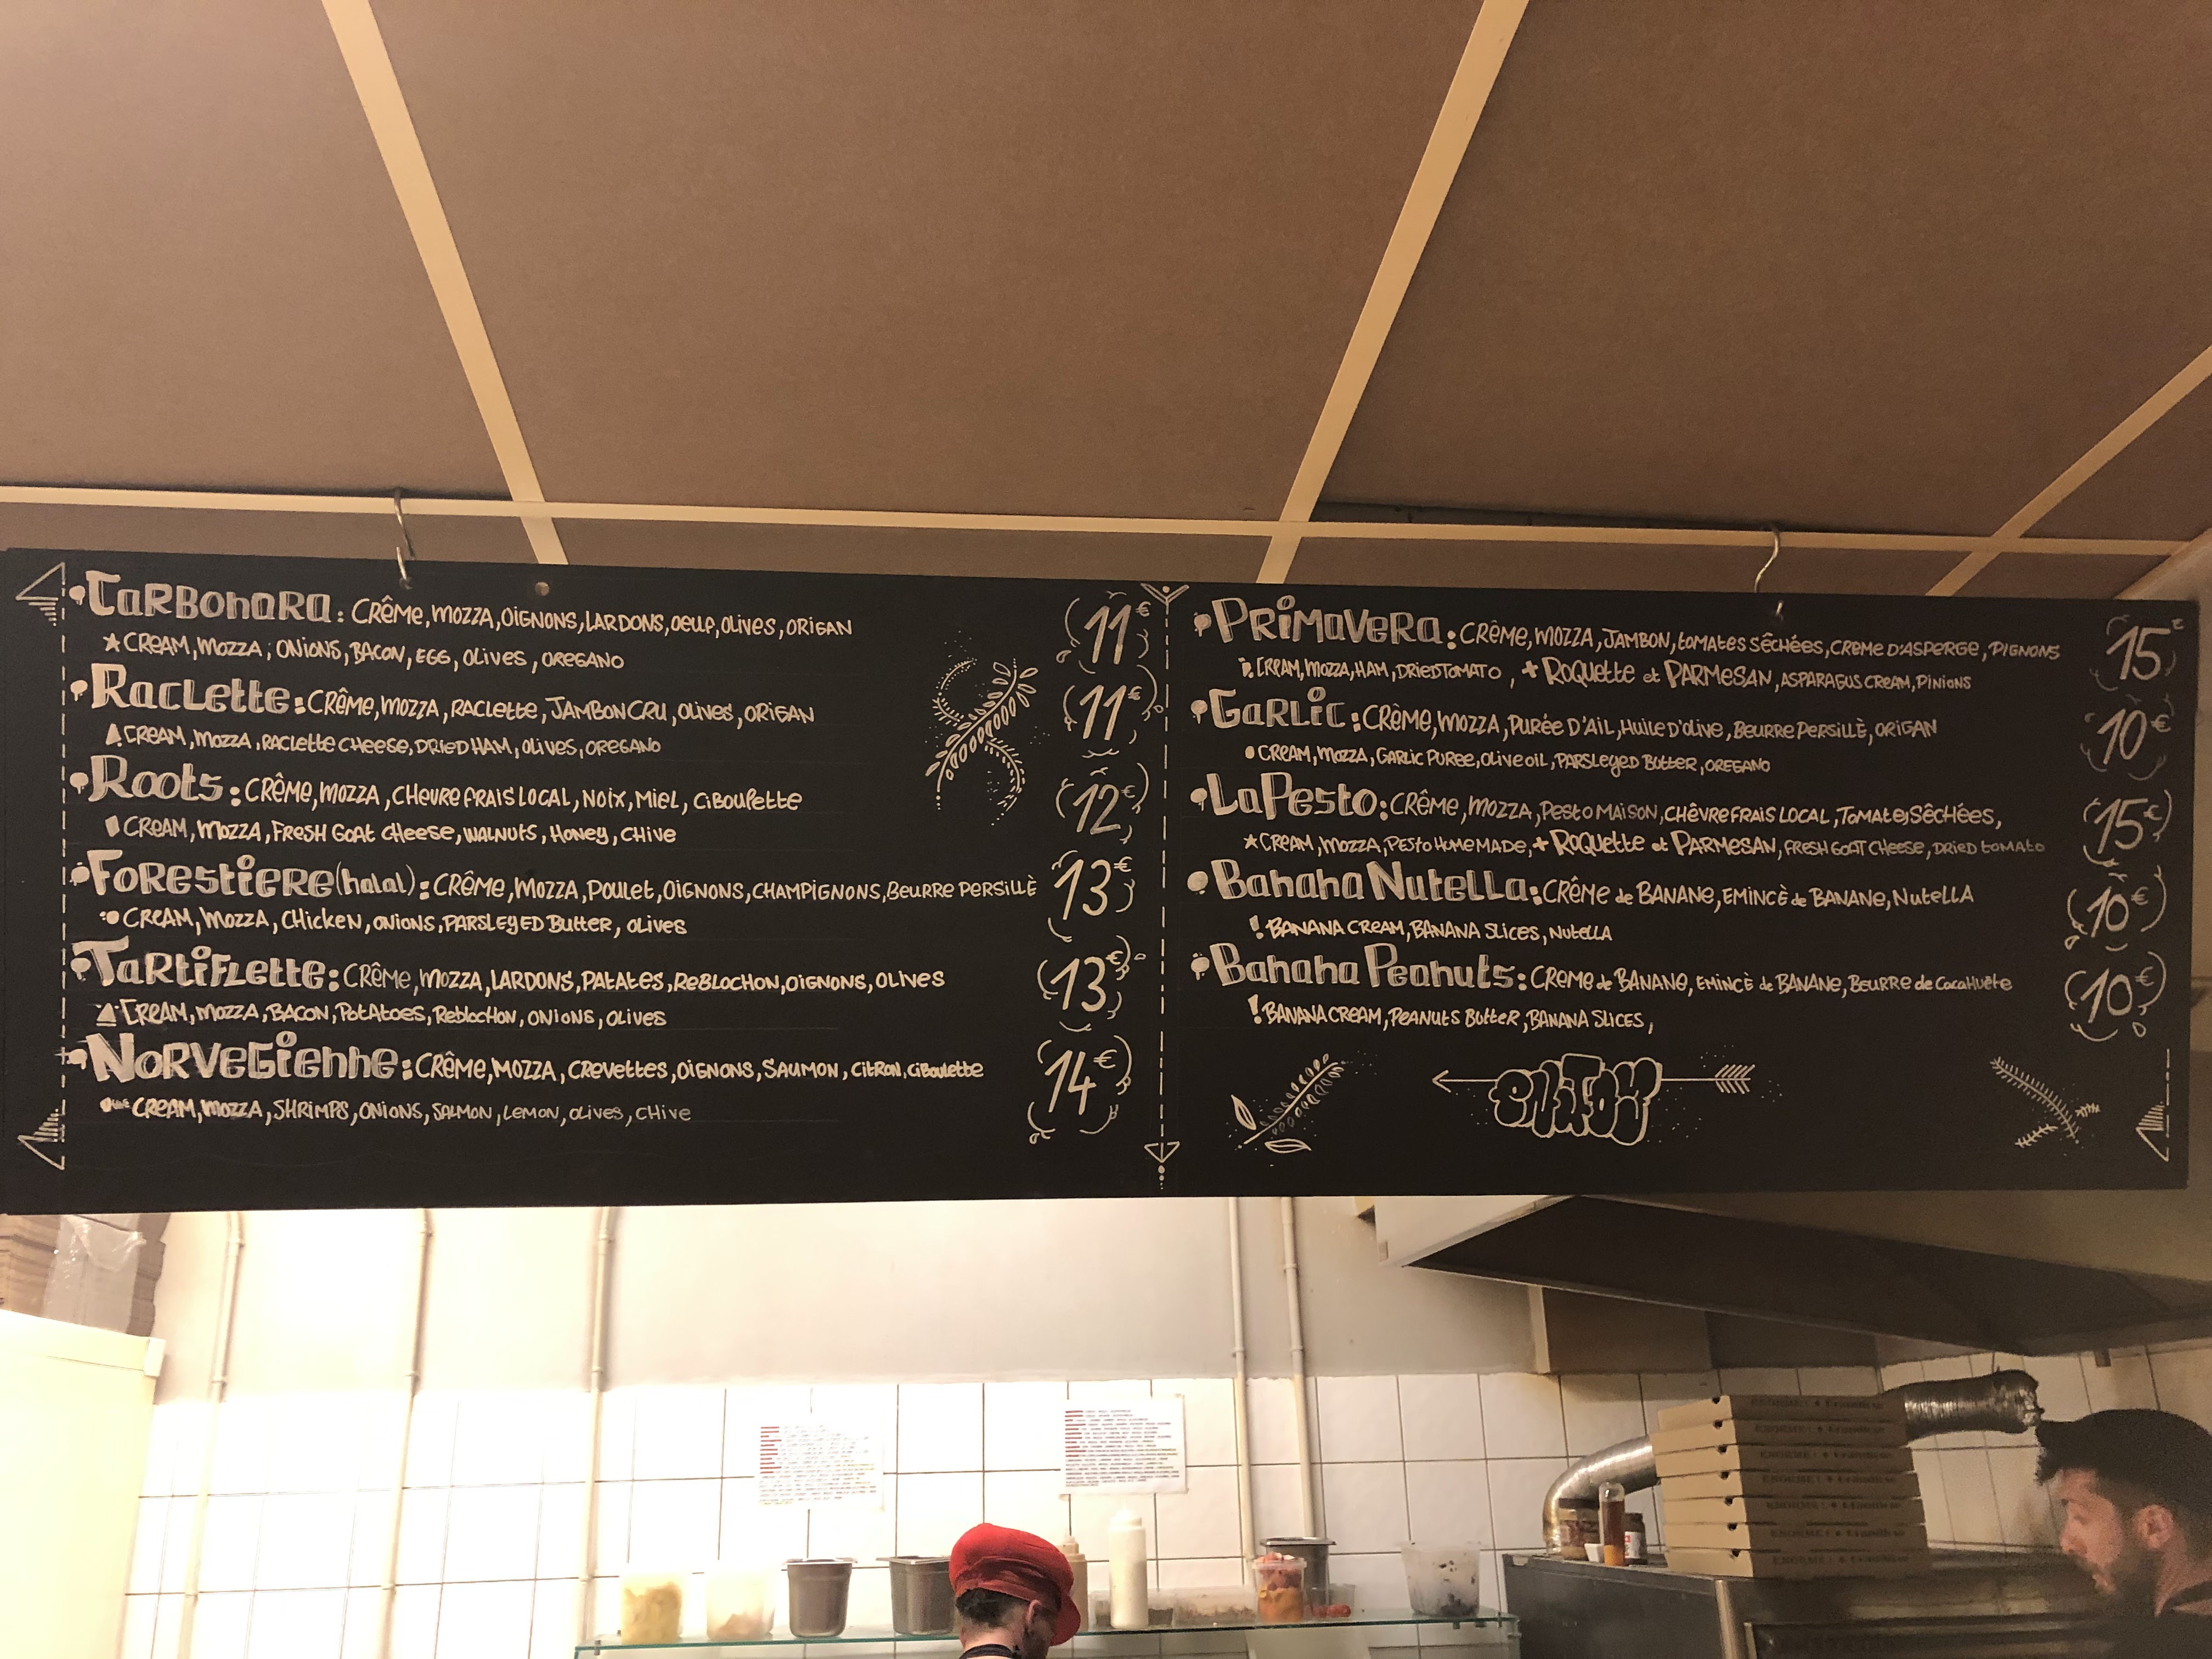 Carbonara: Crême, mozza, oignons, lardons, oeuf, olives, origan 11€
Cream, mozza, onions, bacon, egg, olives, oregano
Raclette: Crême, mozza, raclette, jambon cru, olives, origan 11€
Cream, mozza, raclette cheese, dried ham, olives, oregano
Roots: Crême, mozza, chevre frais local, noix, miel, ciboulette 12€
Cream, mozza, fresh goat cheese, walnuts, honey, chive
Forestiere (halal): Crême, mozza, poulet, oignons, champignons, beurre persillè 13€
Cream, mozza, chicken, onions, parsleyed butter, olives
Tartiflette: Crême, mozza, lardons, patates, reblochon, oignons, olives 13€
Cream, mozza, bacon, potatoes, reblochon, onions, olives
Norvegienne: Crême, mozza, crevettes, oignons, saumon, citron, ciboulette 14€
Cream, mozza, shrimps, onions, salmon, lemon, olives, chive
Primavera: Crême, mozza, jambon, tomates sêchées, creme d'asperge, pignons 15€
Cream, mozza, ham, dried tomato, + Roquette et Parmesan, asparagus cream, pinions
Garlic: Crême, mozza, purée d'ail, huile d'olive, beurre persillè, origan 10€
Cream, mozza, garlic puree, olive oil, parsleyed butter, oregano
La Pesto: Crême, mozza, pesto maison, chêvre frais local, tomates sêchées, 15€
Cream, mozza, pesto home made, + Roquette et Parmesan, fresh goat cheese, dried tomato
Banana Nutella: Crême de banane, emincè de banane, nutella 10€
Banana cream, banana slices, nutella
Banana Peanuts: Creme de banane, emincè de banane, beurre de cacahuète 10€
Banana cream, peanuts butter, banana slices,
enjoy